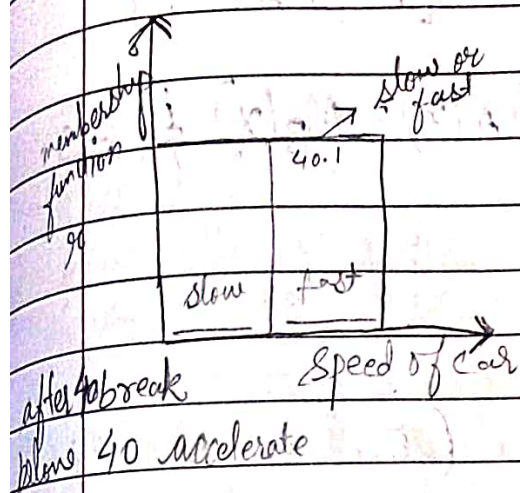 membership
function
slow or
fast
40.1
slow fast
speed of car
after 40 break
40 accelerate